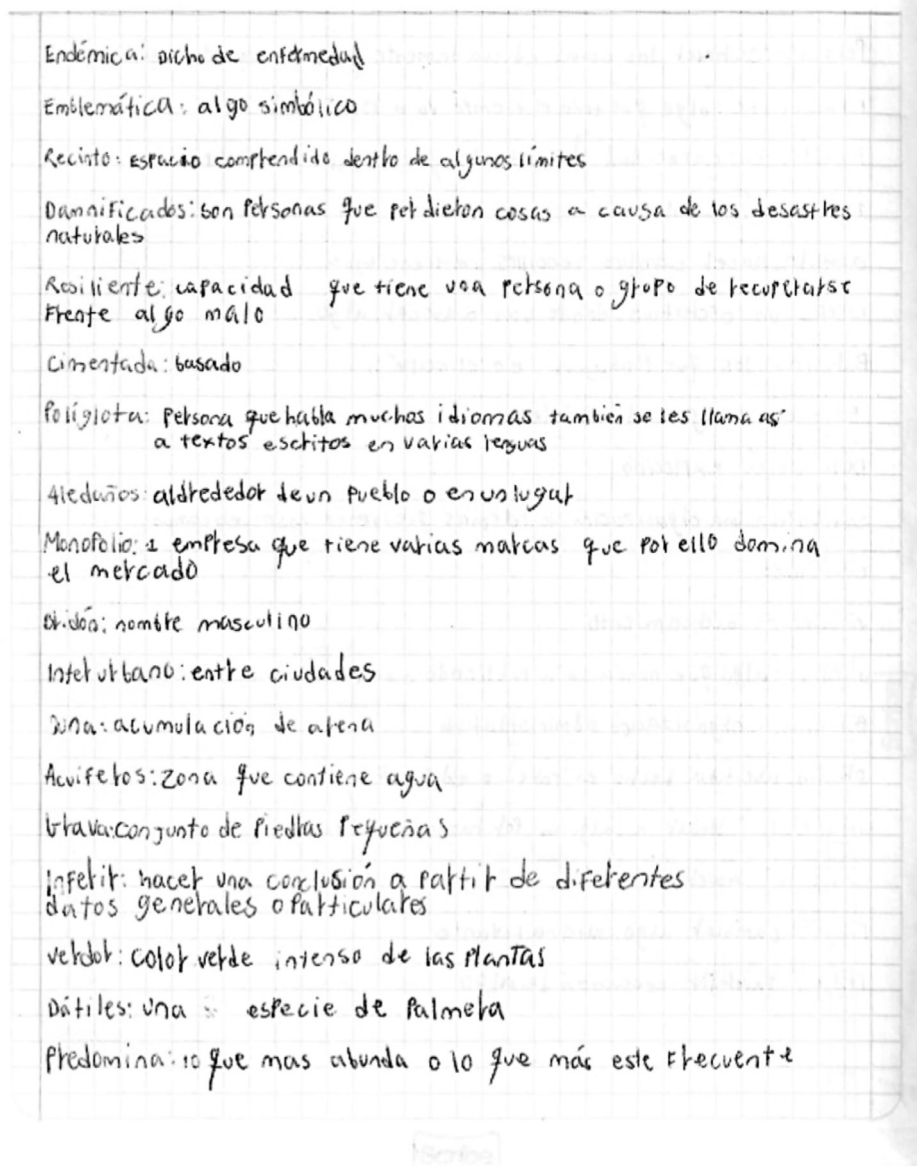 Endémica: Dicho de enfermedad
Emblemática: algo simbólico
Recinto: Espacio comprendido dentro de algunos límites
Damnificados: son Personas que perdieron cosas a causa de los desastres
naturales
Resiliente: capacidad que tiene una persona o grupo de recuperarse
Frente algo malo
Cimentada: basado
Políglota: Persona que habla muchos idiomas también se les llama así
a textos escritos en varias lenguas
Aledaños: aldrededor de un Pueblo o en un lugar
Monopolio: 1 empresa que tiene varias marcas que por ello domina
el mercado
nombre masculino
Interurbano: entre ciudades
Duna: acumulación de arena
Acuiferos: zona que contiene agua
Grava: conjunto de Piedras Pequeñas
Inferir: hacer una conclusión a partir de diferentes
datos generales o particulares
verdor: color verde intenso de las Plantas
Dátiles: una especie de Palmera
Predomina: lo que mas abunda o lo que más este Frecuente